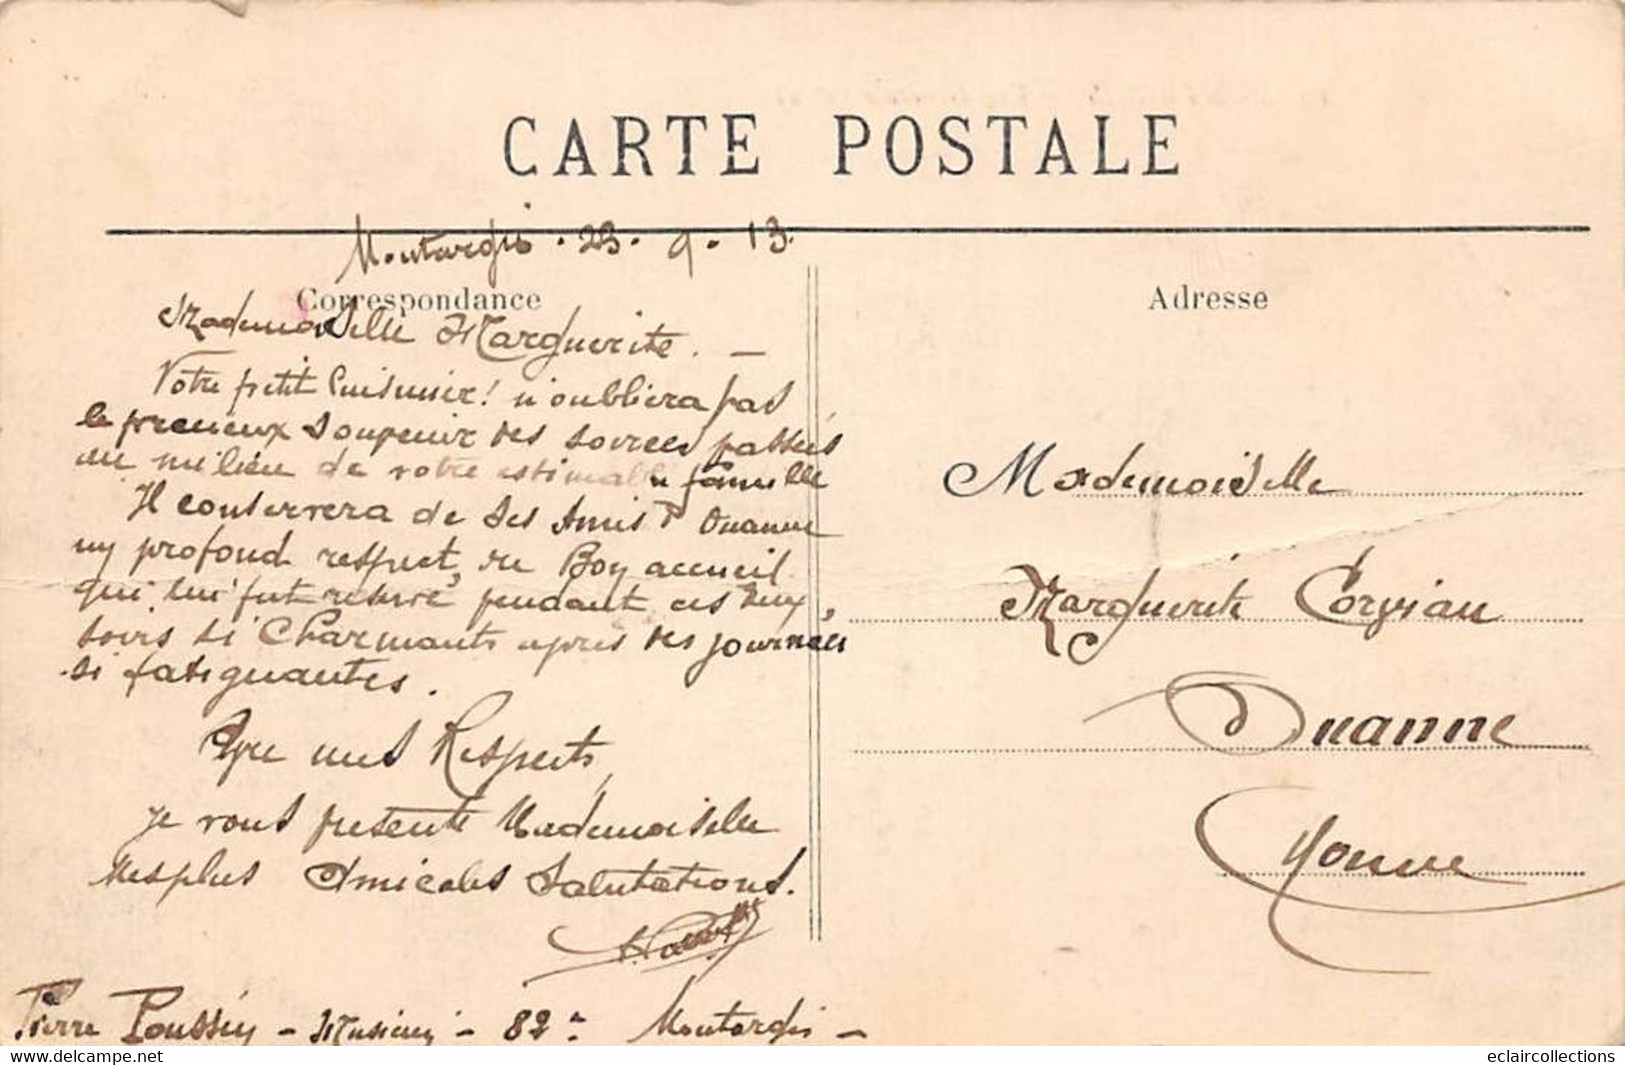 CARTE POSTALE
Montargis . 23 . 9 . 13.
Correspondance
Adresse
Mademoiselle Marguerite . —
Votre petit Cuisinier ! n'oubliera pas
le precieux Souvenir des soirées passées
au milieu de votre estimable famille
Il conservera de ses Amis d' Ouanne
un profond respect, du Bon accueil
qui lui fut réservé pendant ces deux,
soirs si Charmants après des journées
si fatiguantes.
mes Respects,
je vous présente Mademoiselle
Mes plus Amicales Salutations.
Pierre Poussin - Musicien - 82e Montargis -
Mademoiselle
Marguerite Corvian
Ouanne
Yonne
eclaircollections
www.delcampe.net